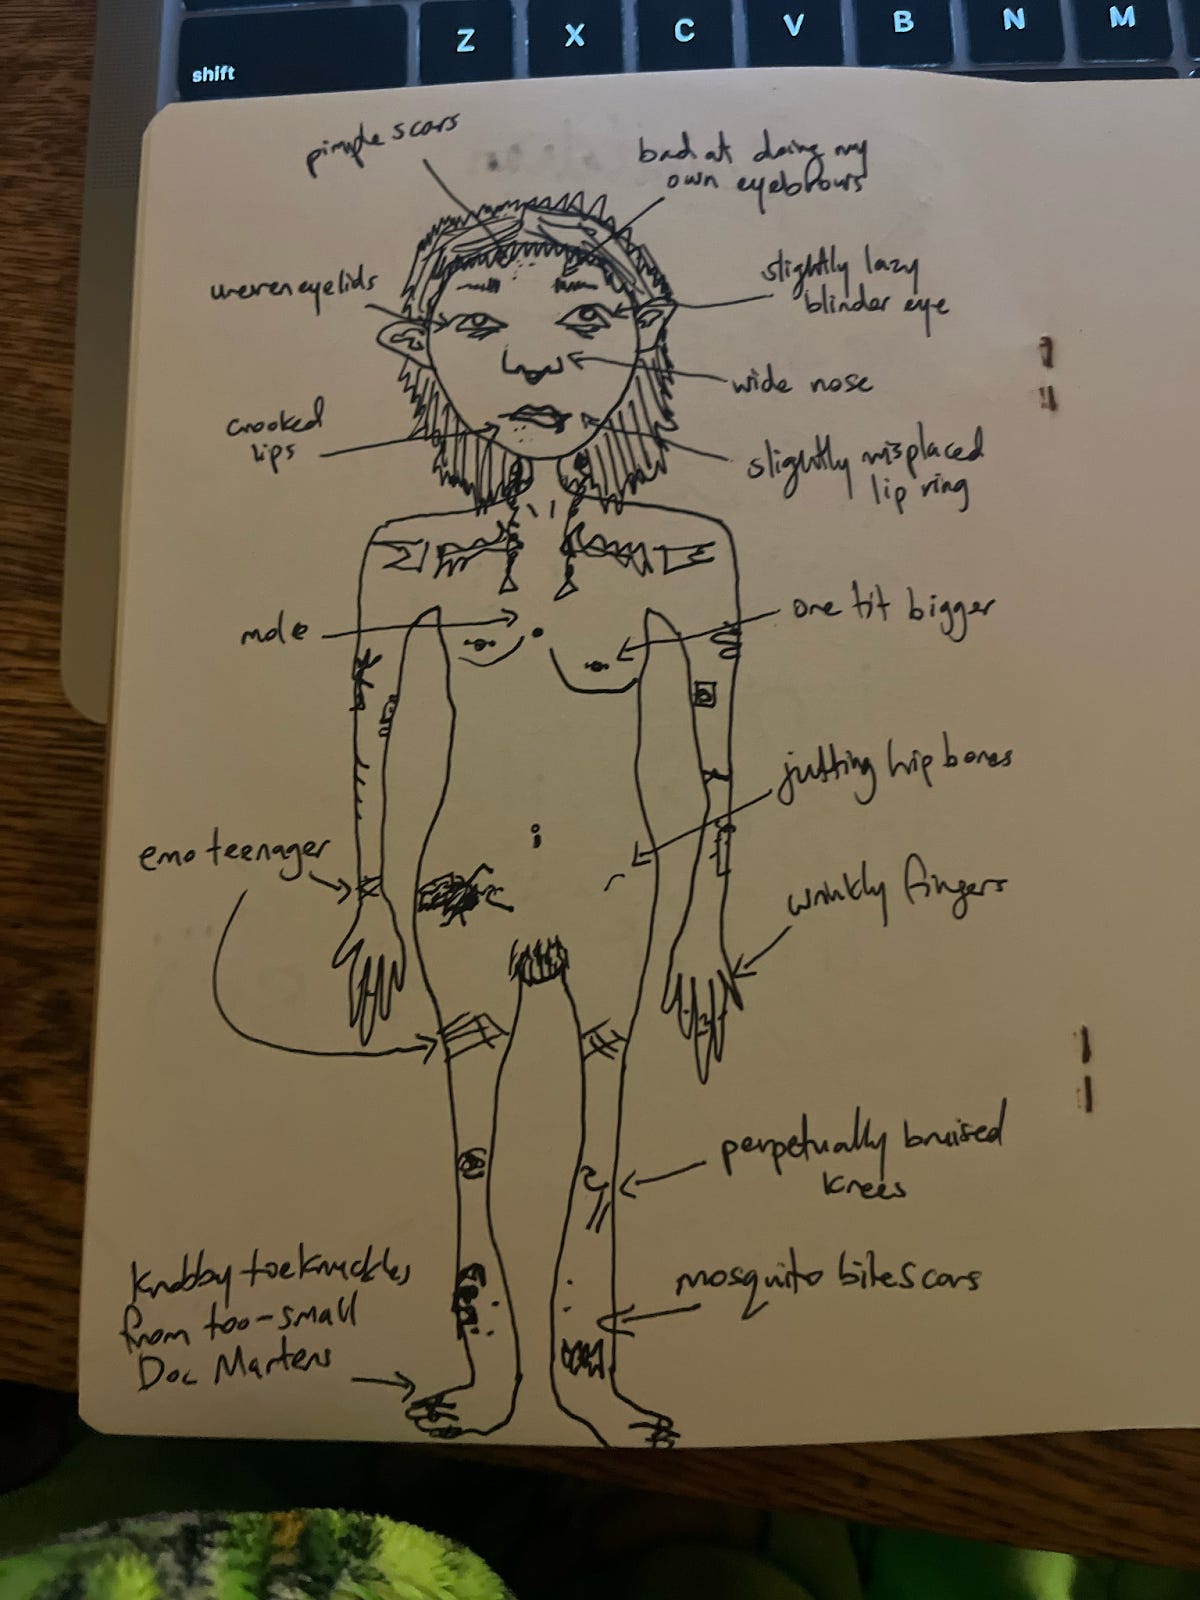 Z X C V B N M
shift
pimple scars
bad at doing my
own eyebrows
uneven eyelids
slightly lazy
blinder eye
wide nose
crooked
lips
slightly misplaced
lip ring
mole
one tit bigger
jutting hip bones
emo teenager
wrinkly fingers
perpetually bruised
knees
Knobby toe knuckles
from too-small
Doc Martens
mosquito bite scars